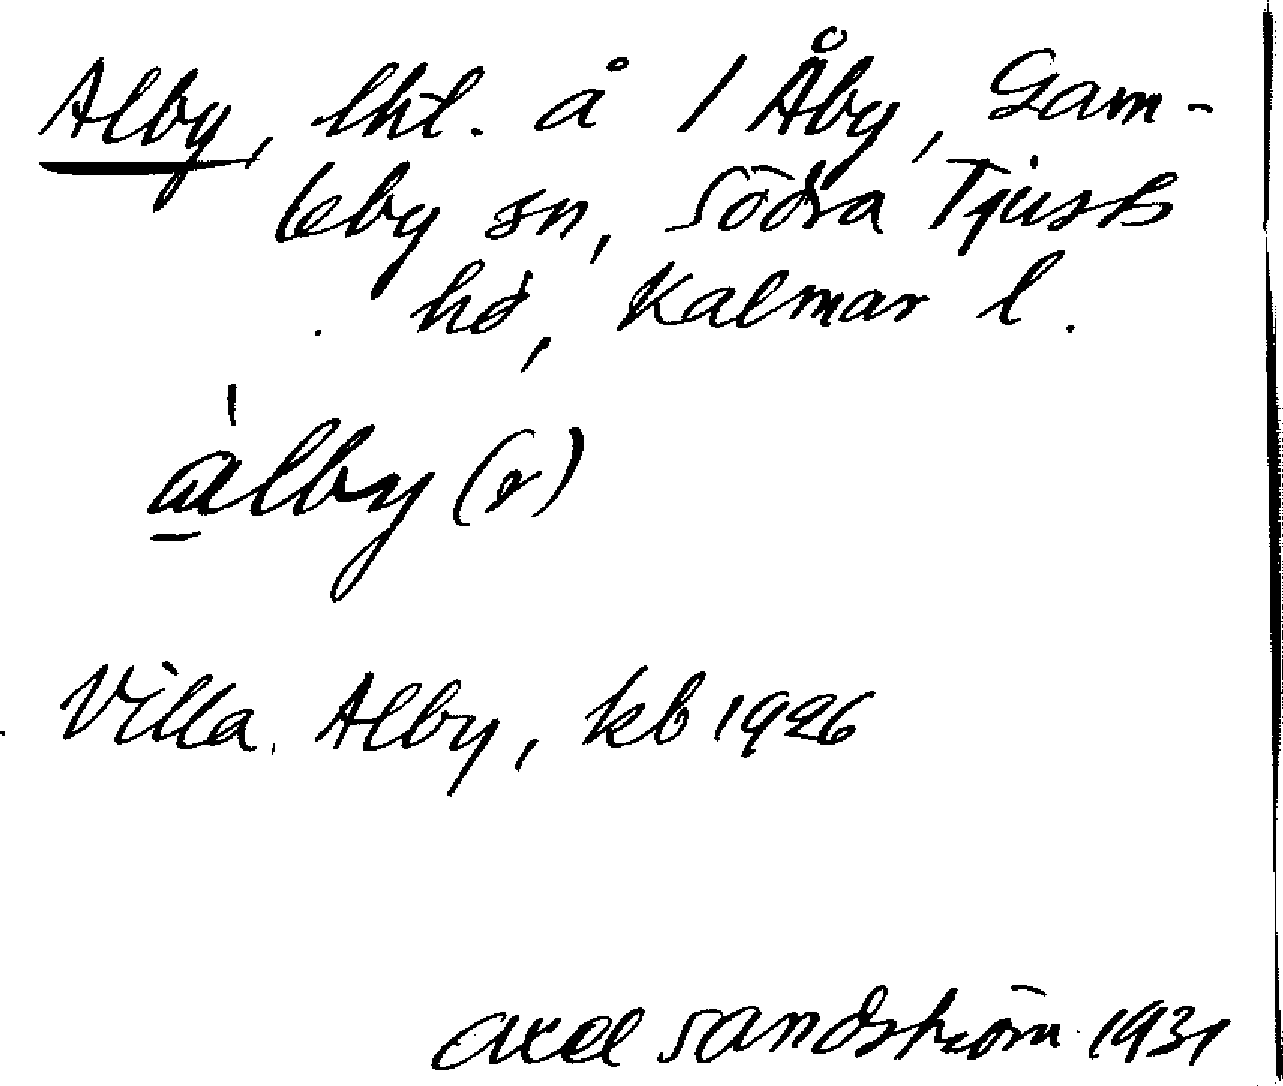 Alby, lht. å 1 Åby, Gam-
leby sn, Södra Tjusts
hd, Kalmar l.
a̱lby (r)
Villa Alby, kb 1926
Axel Sandström 1931